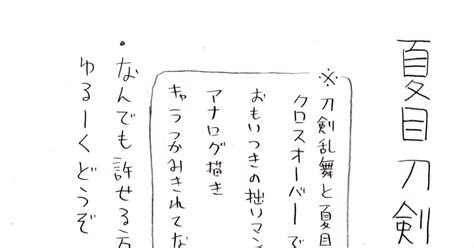 夏目刀剣
※刀剣乱舞と夏目
クロスオーバーで
おもいつきの拙いマン
アナログ描き
キャラつかみきれてな
・なんでも許せる方
ゆるーくどうぞ